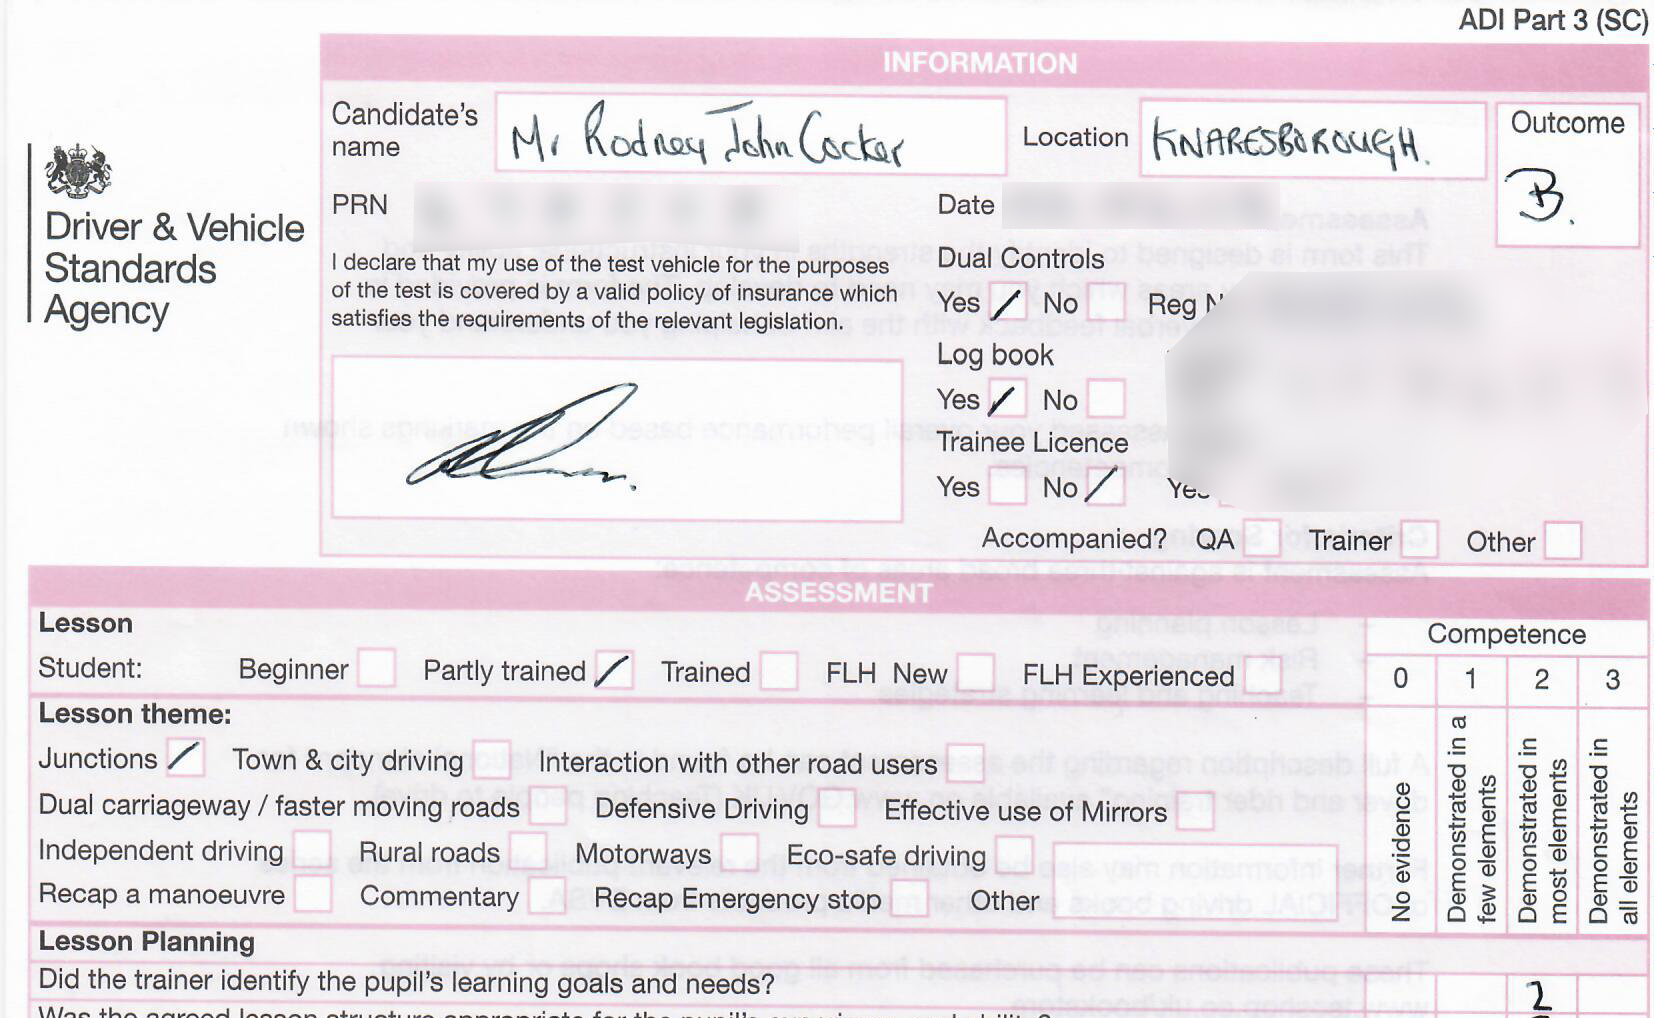 ADI Part 3 (SC)
INFORMATION
Candidate's name Mr Rodney John Cocker
Location KNARESBOROUGH.
Outcome
B.
Driver & Vehicle
Standards
Agency
PRN
Date
I declare that my use of the test vehicle for the purposes
of the test is covered by a valid policy of insurance which
satisfies the requirements of the relevant legislation.
Dual Controls
Yes / No Reg N
Log book
Yes / No
Trainee Licence
Yes No /
Accompanied? QA Trainer Other
ASSESSMENT
Lesson
Student: Beginner Partly trained / Trained FLH New FLH Experienced
Competence
0 1 2 3
No evidence
Demonstrated in a few elements
Demonstrated in most elements
Demonstrated in all elements
Lesson theme:
Junctions / Town & city driving Interaction with other road users
Dual carriageway / faster moving roads Defensive Driving Effective use of Mirrors
Independent driving Rural roads Motorways Eco-safe driving
Recap a manoeuvre Commentary Recap Emergency stop Other
Lesson Planning
Did the trainer identify the pupil's learning goals and needs? 2